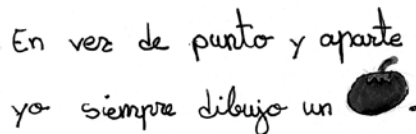 En vez de punto y aparte
yo siempre dibujo un .